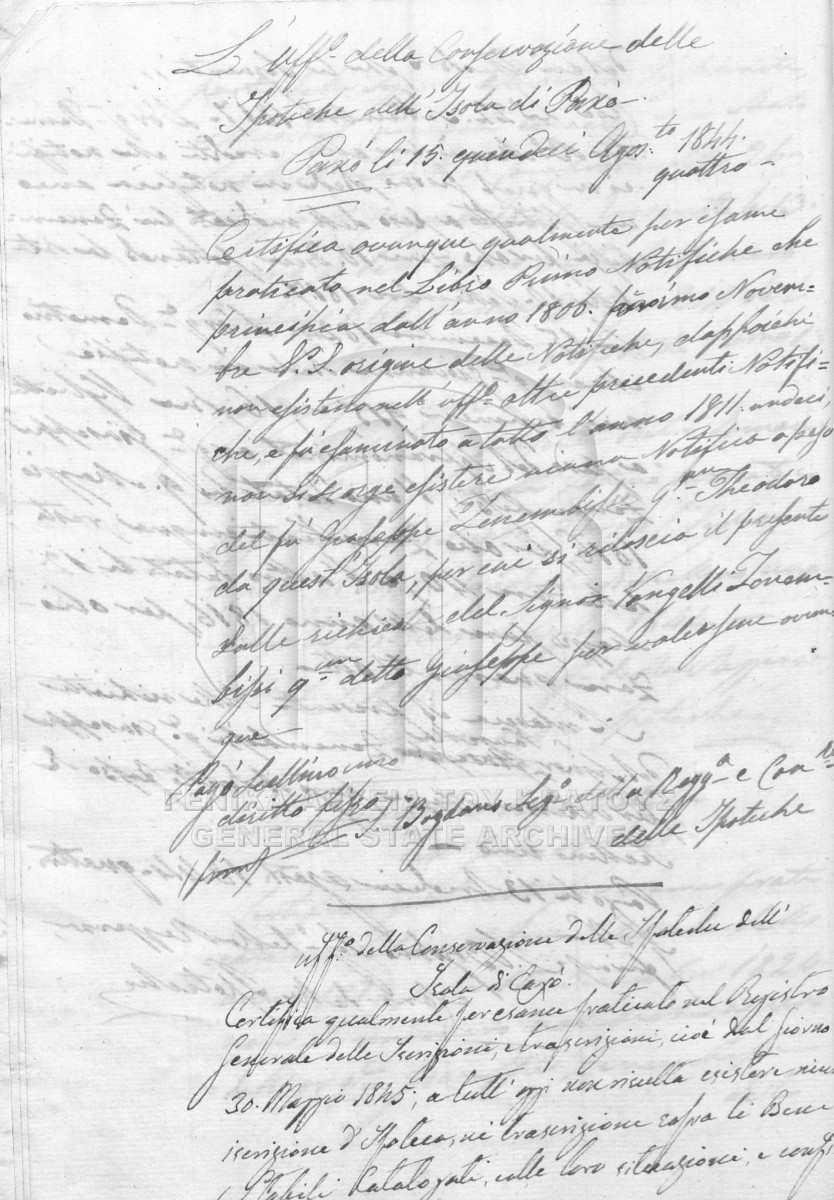 L'Uff.o della Conservazione delle
Ipoteche dell'Isola di Paxò.
Paxò li 15. quindeci Agos.to 1844.
quattro
Certifica ovunque qualmente per esame
praticato nel Libro Primo Notifiche che
principia dall'anno 1806. primo Novem=
bre V.S. origine delle Notifiche, dappoichè
non esistono nell'uff.o altre precedenti Notifi=
che, e fù esaminato a tutto l'anno 1811. undeci,
non si scorge esistere niuna Notifica a peso
del fù Giuseppe Zenembissi q.m Theodoro
da quest'Isola, per cui si rilascia il presente
sulle richieste del Signor Vangelli Zenem=
bissi q.m detto Giuseppe per valersene ovun
que
Pagò Scellino uno
diritto fisso
Bogdano Seg.o della Regg.a e Con.ne
delle Ipoteche
(firm)
ΓΕΝΙΚΑ ΑΡΧΕΙΑ ΤΟΥ ΚΡΑΤΟΥΣ
GENERAL STATE ARCHIVES
Uff.o della Conservazione delle Ipoteche dell'
Isola di Paxò.
Certifica qualmente per esame praticato nel Registro
Generale delle Iscrizioni, e trascrizioni, cioè dal giorno
30. Maggio 1845, a tutt'oggi non risulta esistere niun
iscrizione d'Ipoteca, nè trascrizione sopra li Beni
Stabili Catalogati, colle loro situazioni, e confi